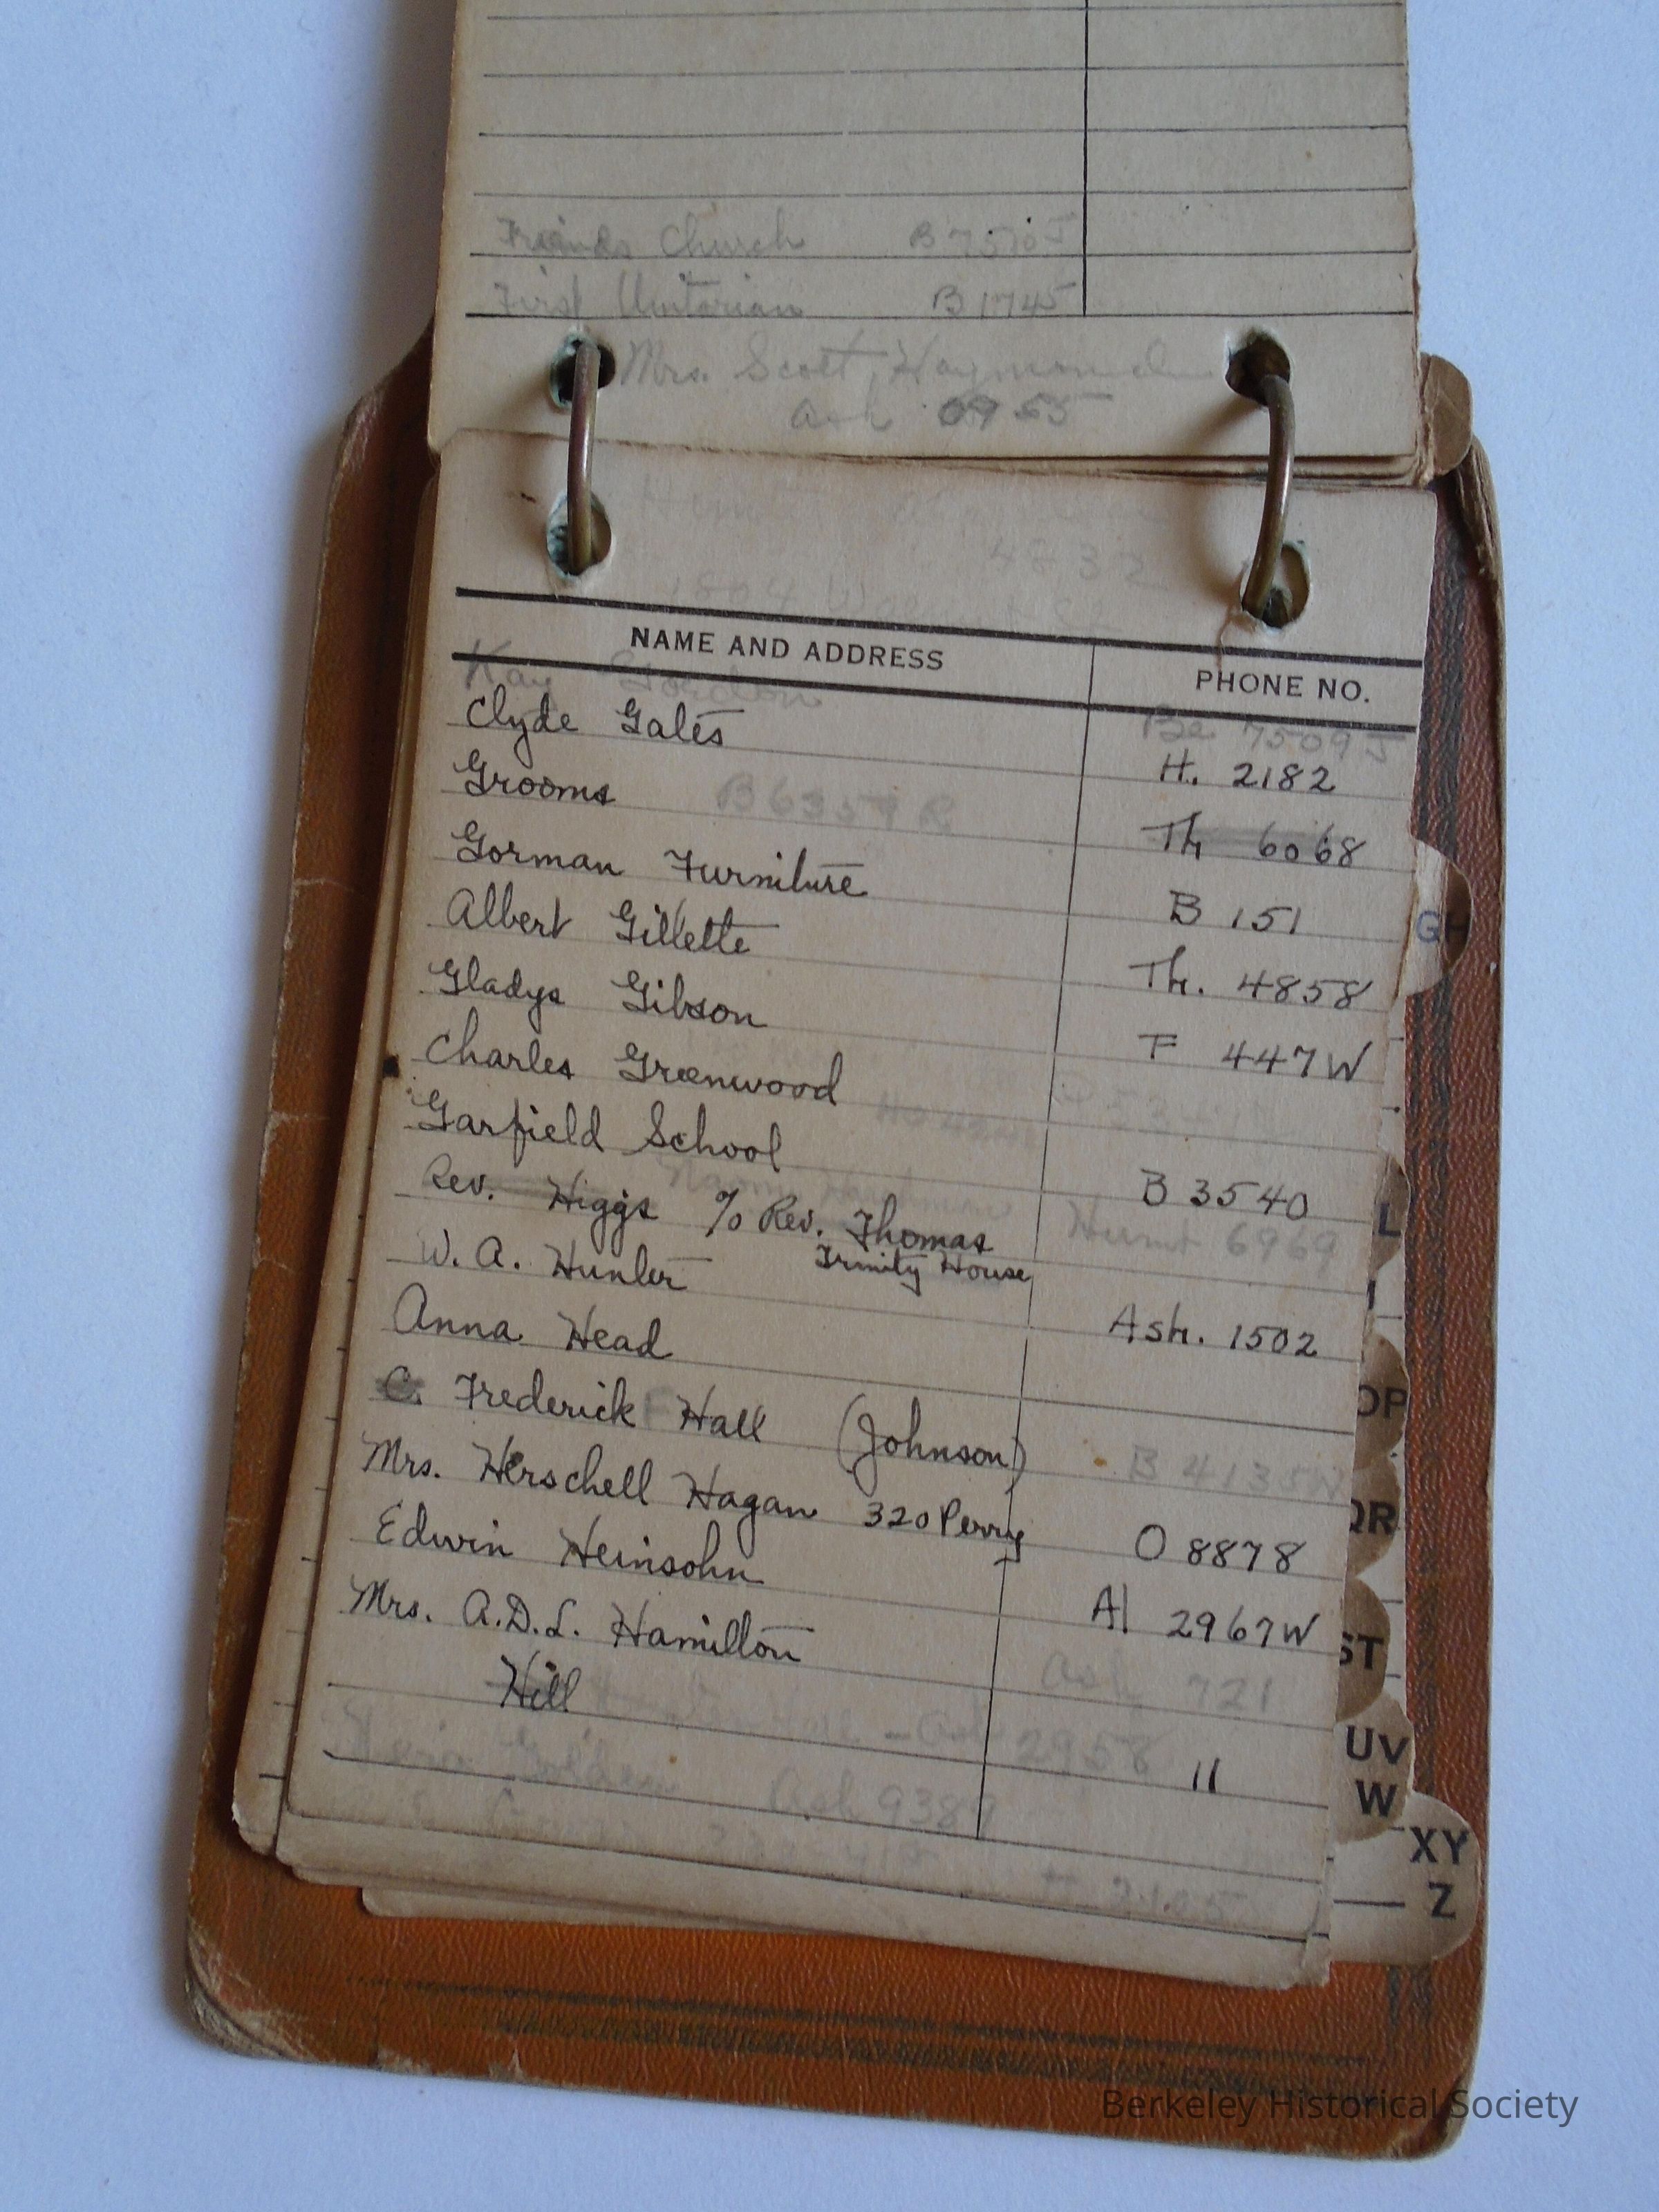 Friends Church B 7510 J
First Unitarian B 1745
Mrs. Scott, Haymond
Ash 0955
4232
1804
NAME AND ADDRESS PHONE NO.
Kay Gordon Be 7509 J
Clyde Gates H. 2182
Grooms B 6359 R Th 6068
Gorman Furniture B 151
Albert Gillette Th. 4858
Gladys Gibson F 447W
Charles Greenwood
Garfield School B 3540
Rev. Higgs % Rev. Thomas Humt 6969
Trinity House
W. A. Hunter Ash. 1502
Anna Head
C. Frederick Hall (Johnson) B 4135W
Mrs. Herschell Hagan 320 Perry O 8878
Edwin Heinsohn Al 2967W
Mrs. A.D.L. Hamilton Ash 721
Hill 2958 "
Golden Ash 9389
GH
L
OP
QR
ST
UV
W
XY
Z
Berkeley Historical Society